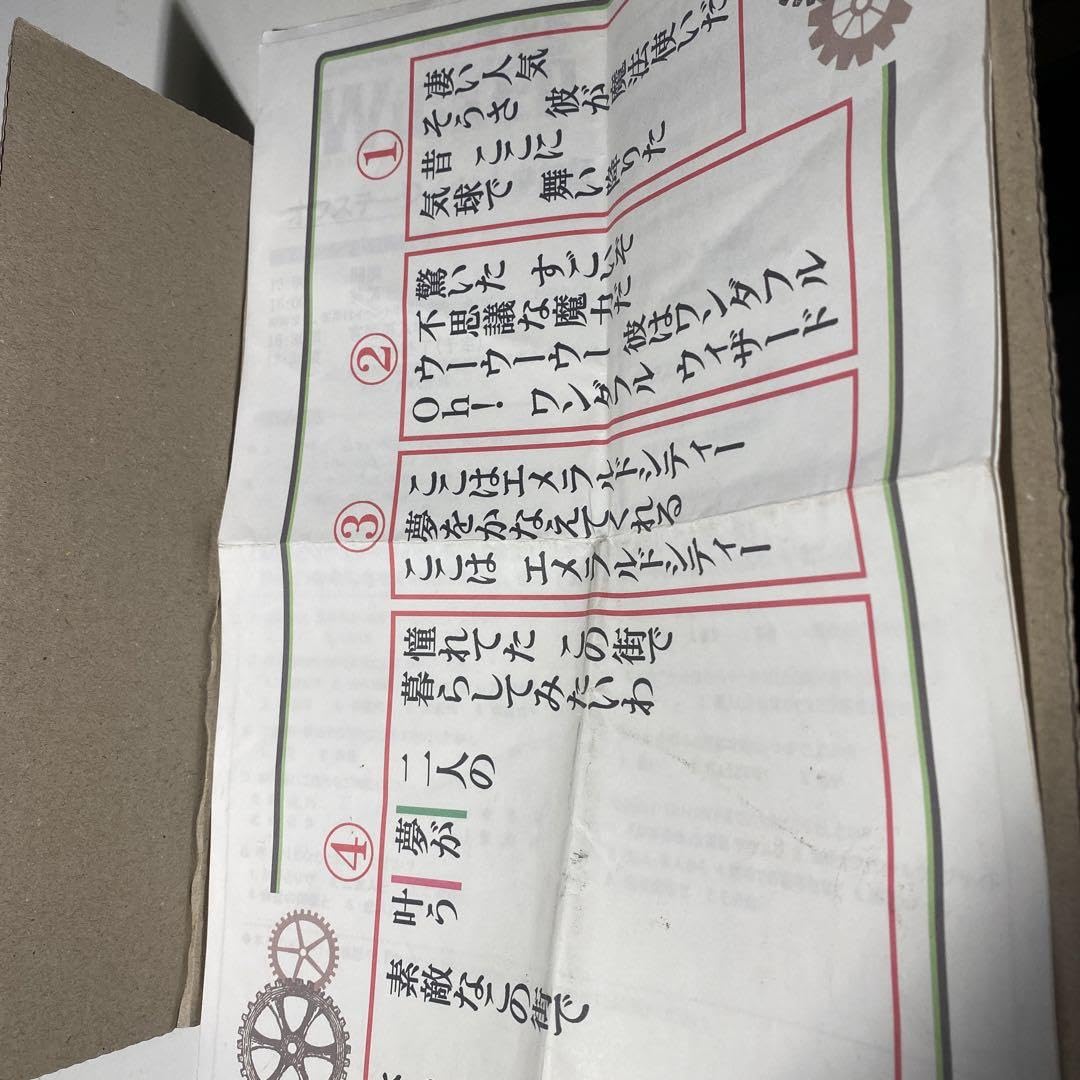 ①
凄い人気
そうさ 彼が魔法使いだ
昔 ここに
気球で 舞い降りた
②
驚いた すごいぞ
不思議な魔力だ
ウーウーウー 彼はワンダフル
Oh! ワンダフル ウィザード
③
ここはエメラルドシティー
夢をかなえてくれる
ここは エメラルドシティー
④
憧れてた この街で
暮らしてみたいわ
二人の
夢が
叶う
素敵なこの街で